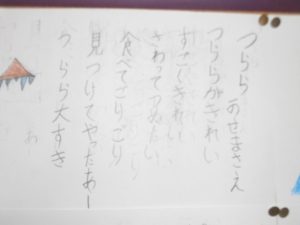 つらら あせまさえ
つららがきれい
すごくきれい
さわってつめたい
食べてごりごり
見つけてやったあー
つらら大すき